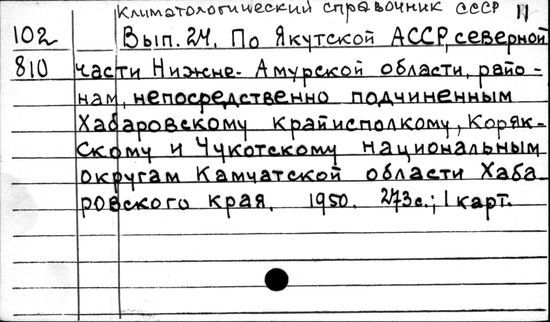 Климатологический справочник СССР 11
102 Вып. 24. По Якутской АССР, северной
810 части Нижне-Амурской области, райо-
нам, непосредственно подчиненным
Хабаровскому крайисполкому, Коряк-
скому и Чукотскому национальным
округам Камчатской области Хаба
ровского края. 1950. 273с.; 1 карт.